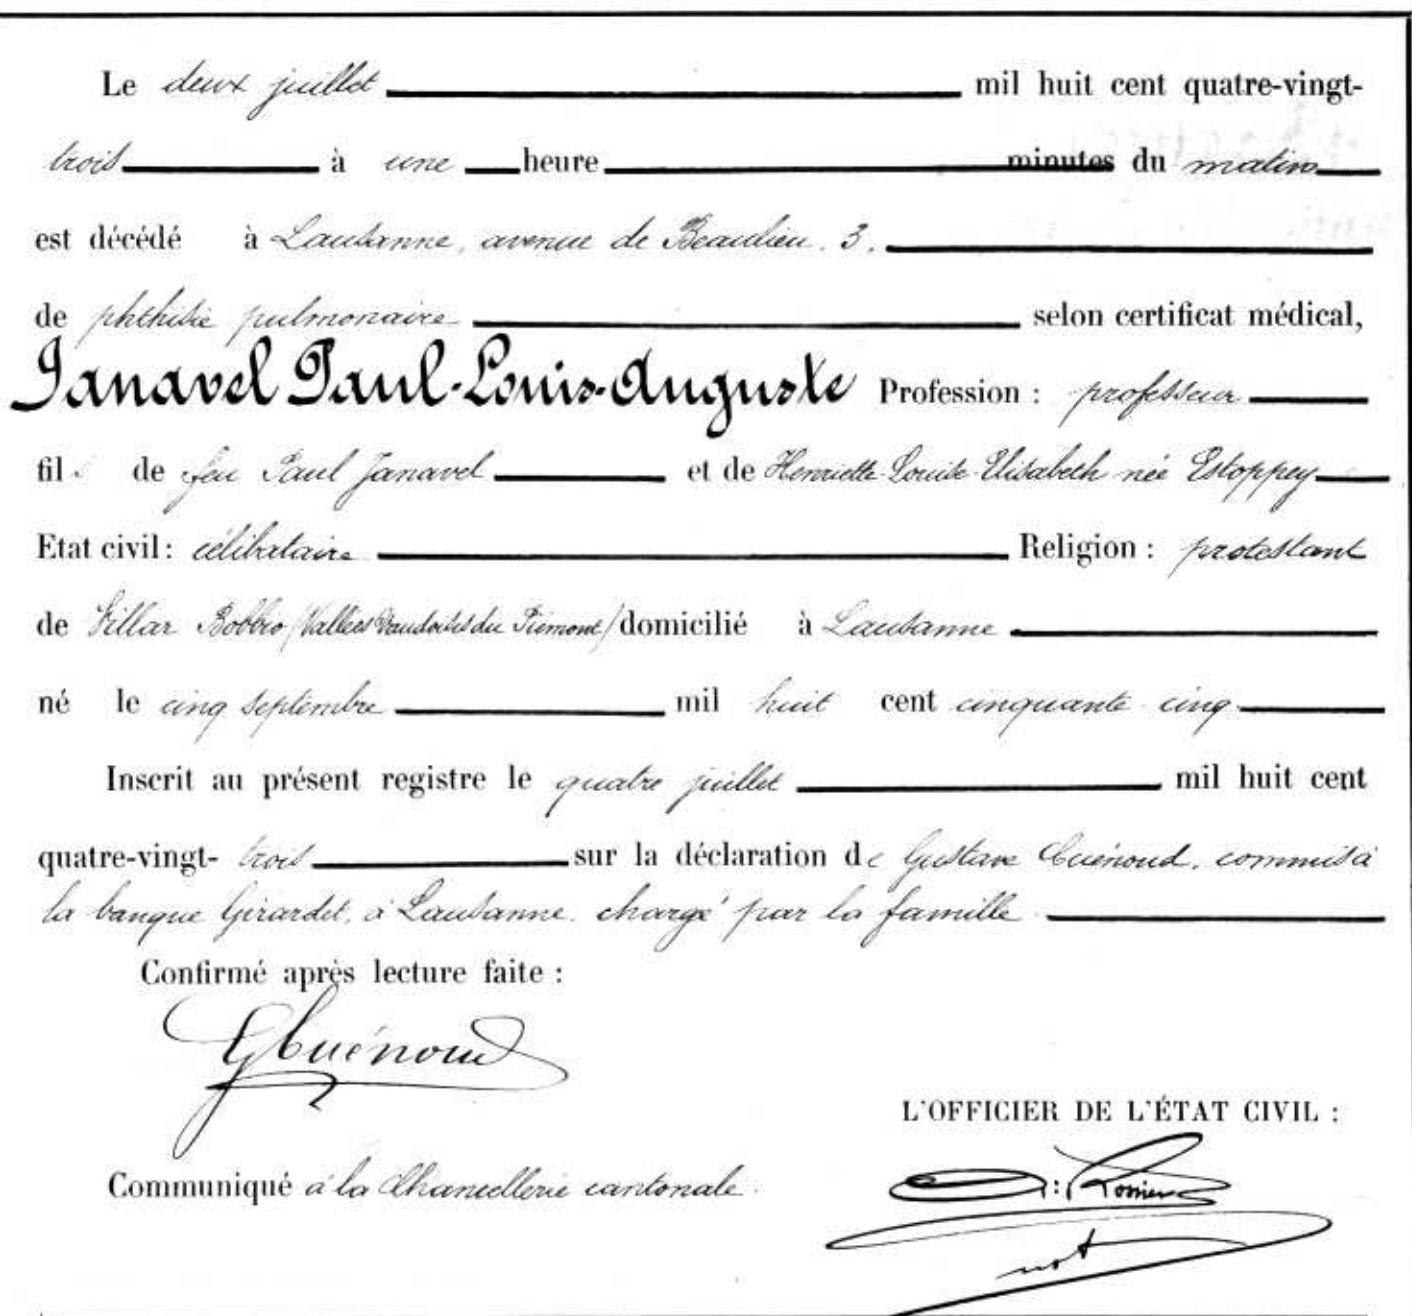 Le deux juillet mil huit cent quatre-vingt-
trois à une heure minutes du matin
est décédé à Lausanne, avenue de Beaulieu, 3,
de phthisie pulmonaire selon certificat médical,
Janavel Paul-Louis-Auguste Profession : professeur
fils de feu Paul Janavel et de Henriette-Louise-Elisabeth née Estoppey
Etat civil : célibataire Religion : protestant
de Villar Bobbio (Vallées Vaudoises du Piémont) domicilié à Lausanne
né le cinq septembre mil huit cent cinquante cinq
Inscrit au présent registre le quatre juillet mil huit cent
quatre-vingt- trois sur la déclaration de Gustave Cuénoud, commis à
la banque Girardet, à Lausanne, chargé par la famille
Confirmé après lecture faite :
GCuénoud
L'OFFICIER DE L'ÉTAT CIVIL :
Communiqué à la Chancellerie cantonale.
not